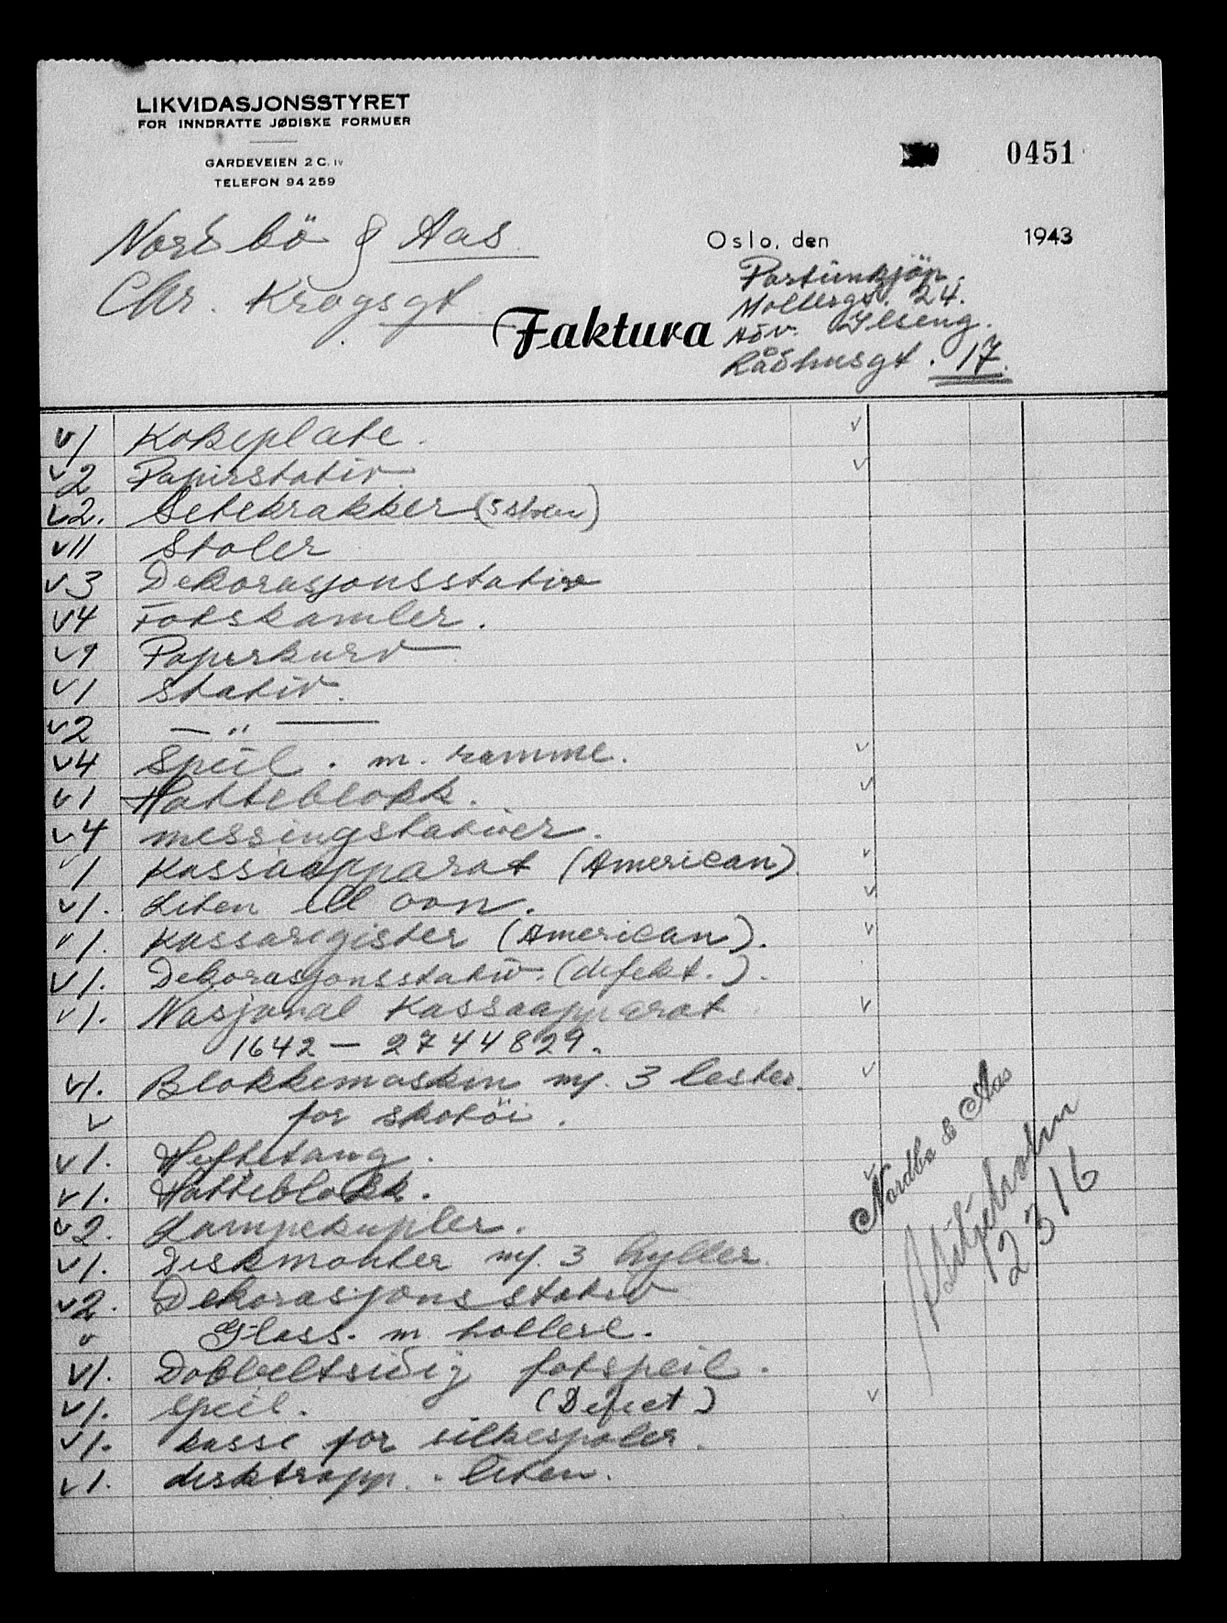 LIKVIDASJONSSTYRET
FOR INNDRATTE JØDISKE FORMUER
GARDEVEIEN 2 C. IV
TELEFON 94259
0451
Nordbö & Aas
Chr. Krogsgt.
Oslo, den 1943
Partiinkjöp.
Mollergt. 24.
Adv. Ilseng.
Rådhusgt. 17.
Faktura
v 1 Kokeplate.
v 2 Papirstativ
v 2. Setekrakker (5 stoler)
v 11 Stoler
v 3 Dekorasjonsstativ
v 4 Fotskamler.
v 1 Papirkurv
v 1 Stativ.
v 2 — " —
v 4 Speil. m. ramme.
v 1 Hatteblokk.
v 4 messingstativer.
v 1 Kassaapparat (American)
v 1. Liten el ovn.
v 1. Kassaregister (American).
v 1. Dekorasjonsstativ (defekt.).
v 1. Nasjonal Kassaapparat
1642 — 2744829.
v 1. Blokkemaskin m/. 3 lester
v for skotöi.
v 1. Heftetang.
v 1. Hatteblokk.
v 2. Lampekupler.
v 1. Diskmonter m/. 3 hyller.
v 2. Dekorasjonsstativ
v Glass. m
v 1. Dobbeltsidig fotspeil.
v 1. Speil. (Defect)
v 1. kasse for silkespoler.
v 1. disktrapp. liten.
Nordbø & Aas
12316